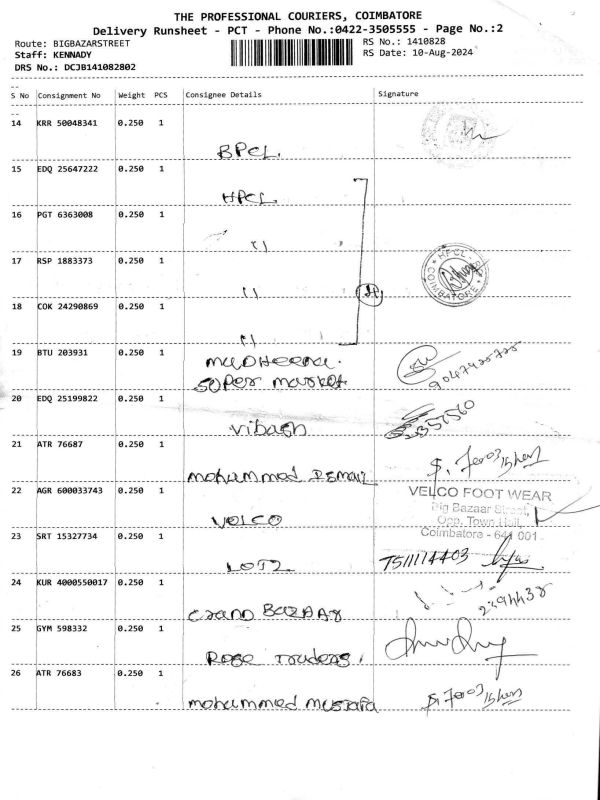 THE PROFESSIONAL COURIERS, COIMBATORE
Delivery Runsheet - PCT - Phone No.:0422-3505555 - Page No.:2
Route: BIGBAZARSTREET
RS No.: 1410828
Staff: KENNADY
RS Date: 10-Aug-2024
DRS No.: DCJB141082802
S No Consignment No Weight PCS Consignee Details Signature
14 KRR 50048341 0.250 1
BPCL.
15 EDQ 25647222 0.250 1
HPCL
16 PGT 6363008 0.250 1
17 RSP 1883373 0.250 1
HPCL
COIMBATORE
18 COK 24290869 0.250 1
19 BTU 203931 0.250 1
muDHeena.
SUPer market
20 EDQ 25199822 0.250 1
Vibash
21 ATR 76687 0.250 1
mohammed Ismail
22 AGR 600033743 0.250 1
VELCO FOOT WEAR
Big Bazaar Street,
Opp. Town Hall,
Coimbatore - 641 001
VOLCO
23 SRT 15327734 0.250 1
7511174403
24 KUR 4000550017 0.250 1
2394438
Grand BAZAAr
25 GYM 598332 0.250 1
Rose Traders.
26 ATR 76683 0.250 1
mohammed mustafa